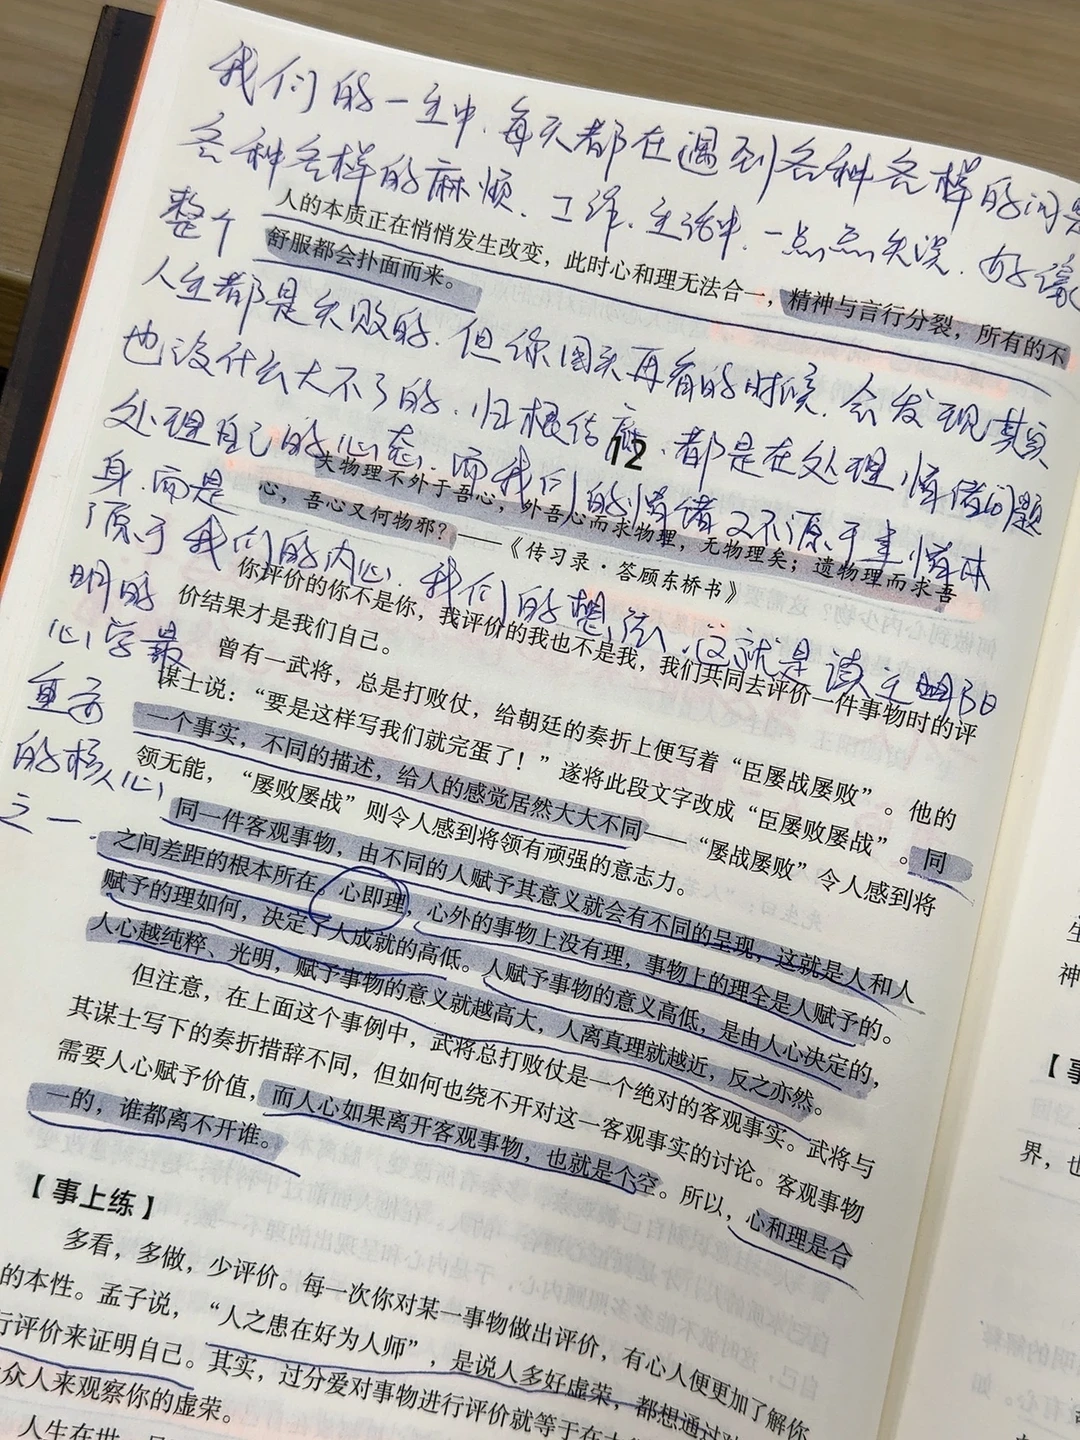 我们的一生中、每天都在遇到各种各样的问题
各种各样的麻烦、工作、生活中、一点点失误、好像
整个
人生都是失败的、但你回头再看的时候、会发现其实
也没什么大不了的、归根结底、都是在处理情绪问题
处理自己的心态、而我们的情绪又不源于事情本
身、而是
源于我们的内心、我们的想法、这就是读王阳明
明的
心学最
重要
的核心
之一、
人的本质正在悄悄发生改变，此时心和理无法合一，精神与言行分裂，所有的不
舒服都会扑面而来。
12
夫物理不外于吾心，外吾心而求物理，无物理矣；遗物理而求吾
心，吾心又何物邪？——《传习录·答顾东桥书》
你评价的你不是你，我评价的我也不是我，我们共同去评价一件事物时的评
价结果才是我们自己。
曾有一武将，总是打败仗，给朝廷的奏折上便写着“臣屡战屡败”。他的
谋士说：“要是这样写我们就完蛋了！”遂将此段文字改成“臣屡败屡战”。同
一个事实，不同的描述，给人的感觉居然大大不同——“屡战屡败”令人感到将
领无能，“屡败屡战”则令人感到将领有顽强的意志力。
同一件客观事物，由不同的人赋予其意义就会有不同的呈现，这就是人和人
之间差距的根本所在。心即理，心外的事物上没有理，事物上的理全是人赋予的。
赋予的理如何，决定了人成就的高低。人赋予事物的意义高低，是由人心决定的，
人心越纯粹、光明，赋予事物的意义就越高大，人离真理就越近，反之亦然。
但注意，在上面这个事例中，武将总打败仗是一个绝对的客观事实。武将与
其谋士写下的奏折措辞不同，但如何也绕不开对这一客观事实的讨论。客观事物
需要人心赋予价值，而人心如果离开客观事物，也就是个空。所以，心和理是合
一的，谁都离不开谁。
【事上练】
多看，多做，少评价。每一次你对某一事物做出评价，有心人便更加了解你
的本性。孟子说，“人之患在好为人师”，是说人多好虚荣，都想通过对
行评价来证明自己。其实，过分爱对事物进行评价就等于在
众人来观察你的虚荣。
人生在世
神
【事
界，也